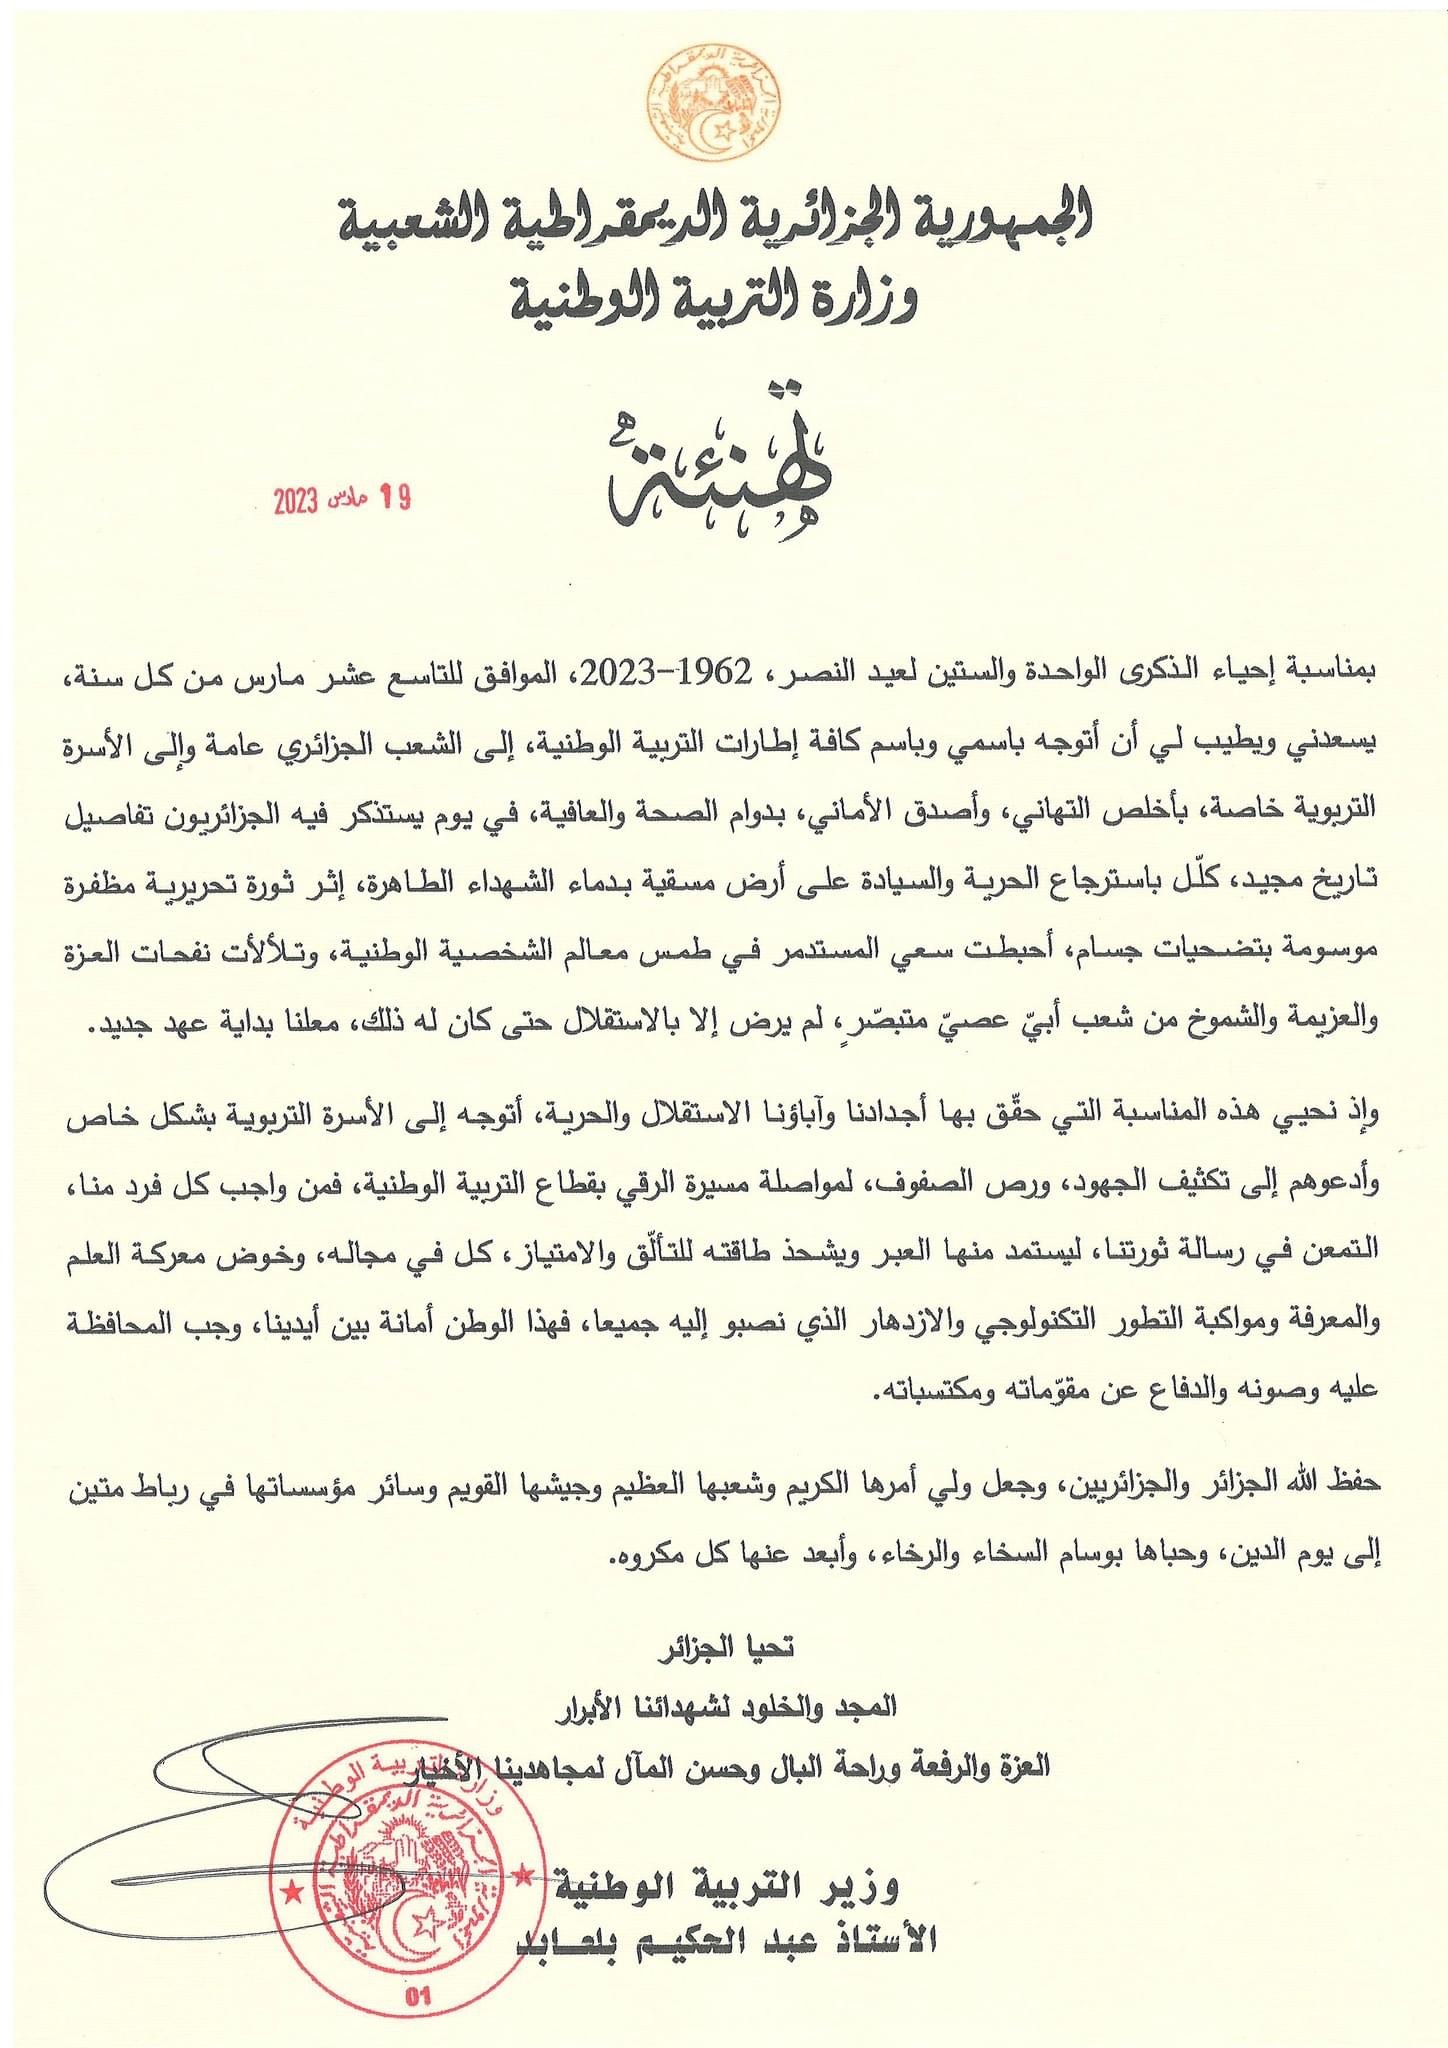 الجمهورية الجزائرية الديمقراطية الشعبية
وزارة التربية الوطنية
تهنئة
19 مارس 2023
بمناسبة إحياء الذكرى الواحدة والستين لعيد النصر، 1962-2023، الموافق للتاسع عشر مارس من كل سنة،
يسعدني ويطيب لي أن أتوجه باسمي وباسم كافة إطارات التربية الوطنية، إلى الشعب الجزائري عامة وإلى الأسرة
التربوية خاصة، بأخلص التهاني، وأصدق الأماني، بدوام الصحة والعافية، في يوم يستذكر فيه الجزائريون تفاصيل
تاريخ مجيد، كلّل باسترجاع الحرية والسيادة على أرض مسقية بدماء الشهداء الطاهرة، إثر ثورة تحريرية مظفرة
موسومة بتضحيات جسام، أحبطت سعي المستدمر في طمس معالم الشخصية الوطنية، وتلألأت نفحات العزة
والعزيمة والشموخ من شعب أبيّ عصيّ متبصّرٍ، لم يرض إلا بالاستقلال حتى كان له ذلك، معلنا بداية عهد جديد.
وإذ نحيي هذه المناسبة التي حقّق بها أجدادنا وآباؤنا الاستقلال والحرية، أتوجه إلى الأسرة التربوية بشكل خاص
وأدعوهم إلى تكثيف الجهود، ورص الصفوف، لمواصلة مسيرة الرقي بقطاع التربية الوطنية، فمن واجب كل فرد منا،
التمعن في رسالة ثورتنا، ليستمد منها العبر ويشحذ طاقته للتألّق والامتياز، كل في مجاله، وخوض معركة العلم
والمعرفة ومواكبة التطور التكنولوجي والازدهار الذي نصبو إليه جميعا، فهذا الوطن أمانة بين أيدينا، وجب المحافظة
عليه وصونه والدفاع عن مقوّماته ومكتسباته.
حفظ الله الجزائر والجزائريين، وجعل ولي أمرها الكريم وشعبها العظيم وجيشها القويم وسائر مؤسساتها في رباط متين
إلى يوم الدين، وحباها بوسام السخاء والرخاء، وأبعد عنها كل مكروه.
تحيا الجزائر
المجد والخلود لشهدائنا الأبرار
العزة والرفعة وراحة البال وحسن المآل لمجاهدينا الأخيار
وزير التربية الوطنية
الأستاذ عبد الحكيم بلعابد
وزارة التربية الوطنية
الجمهورية الجزائرية الديمقراطية الشعبية
01